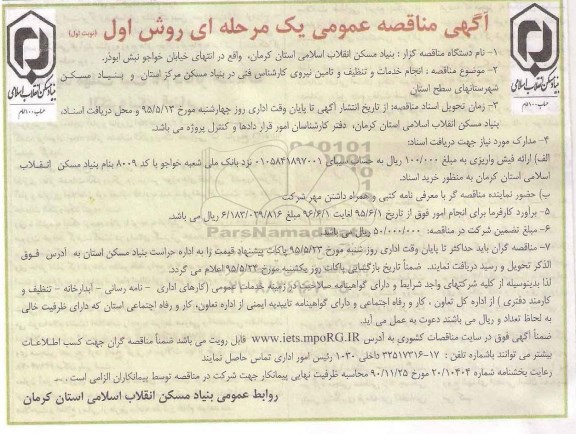 آگهی مناقصه عمومی یک مرحله ای روش اول (نوبت اول)
۱- نام دستگاه مناقصه گزار : بنیاد مسکن انقلاب اسلامی استان کرمان، واقع در انتهای خیابان خواجو نبش ابوذر.
۲- موضوع مناقصه : انجام خدمات و تنظیف و تامین نیروی کارشناس فنی در بنیاد مسکن مرکز استان و بنیاد مسکن
شهرستانهای سطح استان
۳- زمان تحویل اسناد مناقصه: از تاریخ انتشار آگهی تا پایان وقت اداری روز چهارشنبه مورخ ۹۵/۵/۱۳ و محل دریافت اسناد،
بنیاد مسکن انقلاب اسلامی استان کرمان، دفتر کارشناسان امور قرار دادها و کنترل پروژه می باشد.
۴- مدارک مورد نیاز جهت دریافت اسناد:
الف) ارائه فیش واریزی به مبلغ ۱۰۰/۰۰۰ ریال به حساب سیبای ۰۱۰۵۸۴۱۸۹۷۰۰۱ نزد بانک ملی شعبه خواجو با کد ۸۰۰۹ بنام بنیاد مسکن انقلاب
اسلامی استان کرمان به منظور خرید اسناد.
ب) حضور نماینده مناقصه گر با معرفی نامه کتبی و همراه داشتن مهر شرکت
۵- برآورد کارفرما برای انجام امور فوق از تاریخ ۹۵/۶/۱ لغایت ۹۶/۶/۱ مبلغ ۶/۱۸۳/۰۳۹/۸۱۶ ریال می باشد.
۶- مبلغ تضمین شرکت در مناقصه: ۵۰/۰۰۰/۰۰۰ ریال می باشد.
۷- مناقصه گران باید حداکثر تا پایان وقت اداری روز شنبه مورخ ۹۵/۵/۲۳ پاکات پیشنهاد قیمت را به اداره حراست بنیاد مسکن استان به آدرس فوق
الذکر تحویل و رسید دریافت نمایند. ضمناً تاریخ بازگشایی پاکات روز یکشنبه مورخ ۹۵/۵/۲۴ اعلام می گردد.
لذا بدینوسیله از کلیه شرکتهای واجد شرایط و دارای گواهینامه صلاحیت در زمینه خدمات عمومی (کارهای اداری - نامه رسانی - آبدارخانه - تنظیف و
کارمند دفتری ) از اداره کل تعاون ، کار و رفاه اجتماعی و دارای گواهینامه تاییدیه ایمنی از اداره تعاون، کار و رفاه اجتماعی استان که دارای ظرفیت خالی
به لحاظ تعداد و ریال می باشند دعوت به عمل می آید.
ضمناً آگهی فوق در سایت مناقصات کشوری به آدرس www.iets.mpoRG.IR قابل رویت می باشد ضمناً مناقصه گران جهت کسب اطلاعات
بیشتر می توانند باشماره تلفن : ۱۷-۳۲۵۱۷۳۱۶ داخلی ۱۰۳۰ رئیس امور اداری تماس حاصل نمایند
رعایت بخشنامه شماره ۲۰/۱۰۴۰۴ مورخ ۹۰/۱۱/۲۵ محاسبه ظرفیت نهایی پیمانکار جهت شرکت در مناقصه توسط پیمانکاران الزامی است .
روابط عمومی بنیاد مسکن انقلاب اسلامی استان کرمان
بنیاد مسکن انقلاب اسلامی
حساب ۱۰۰ امام
بنیاد مسکن انقلاب اسلامی
حساب ۱۰۰ امام